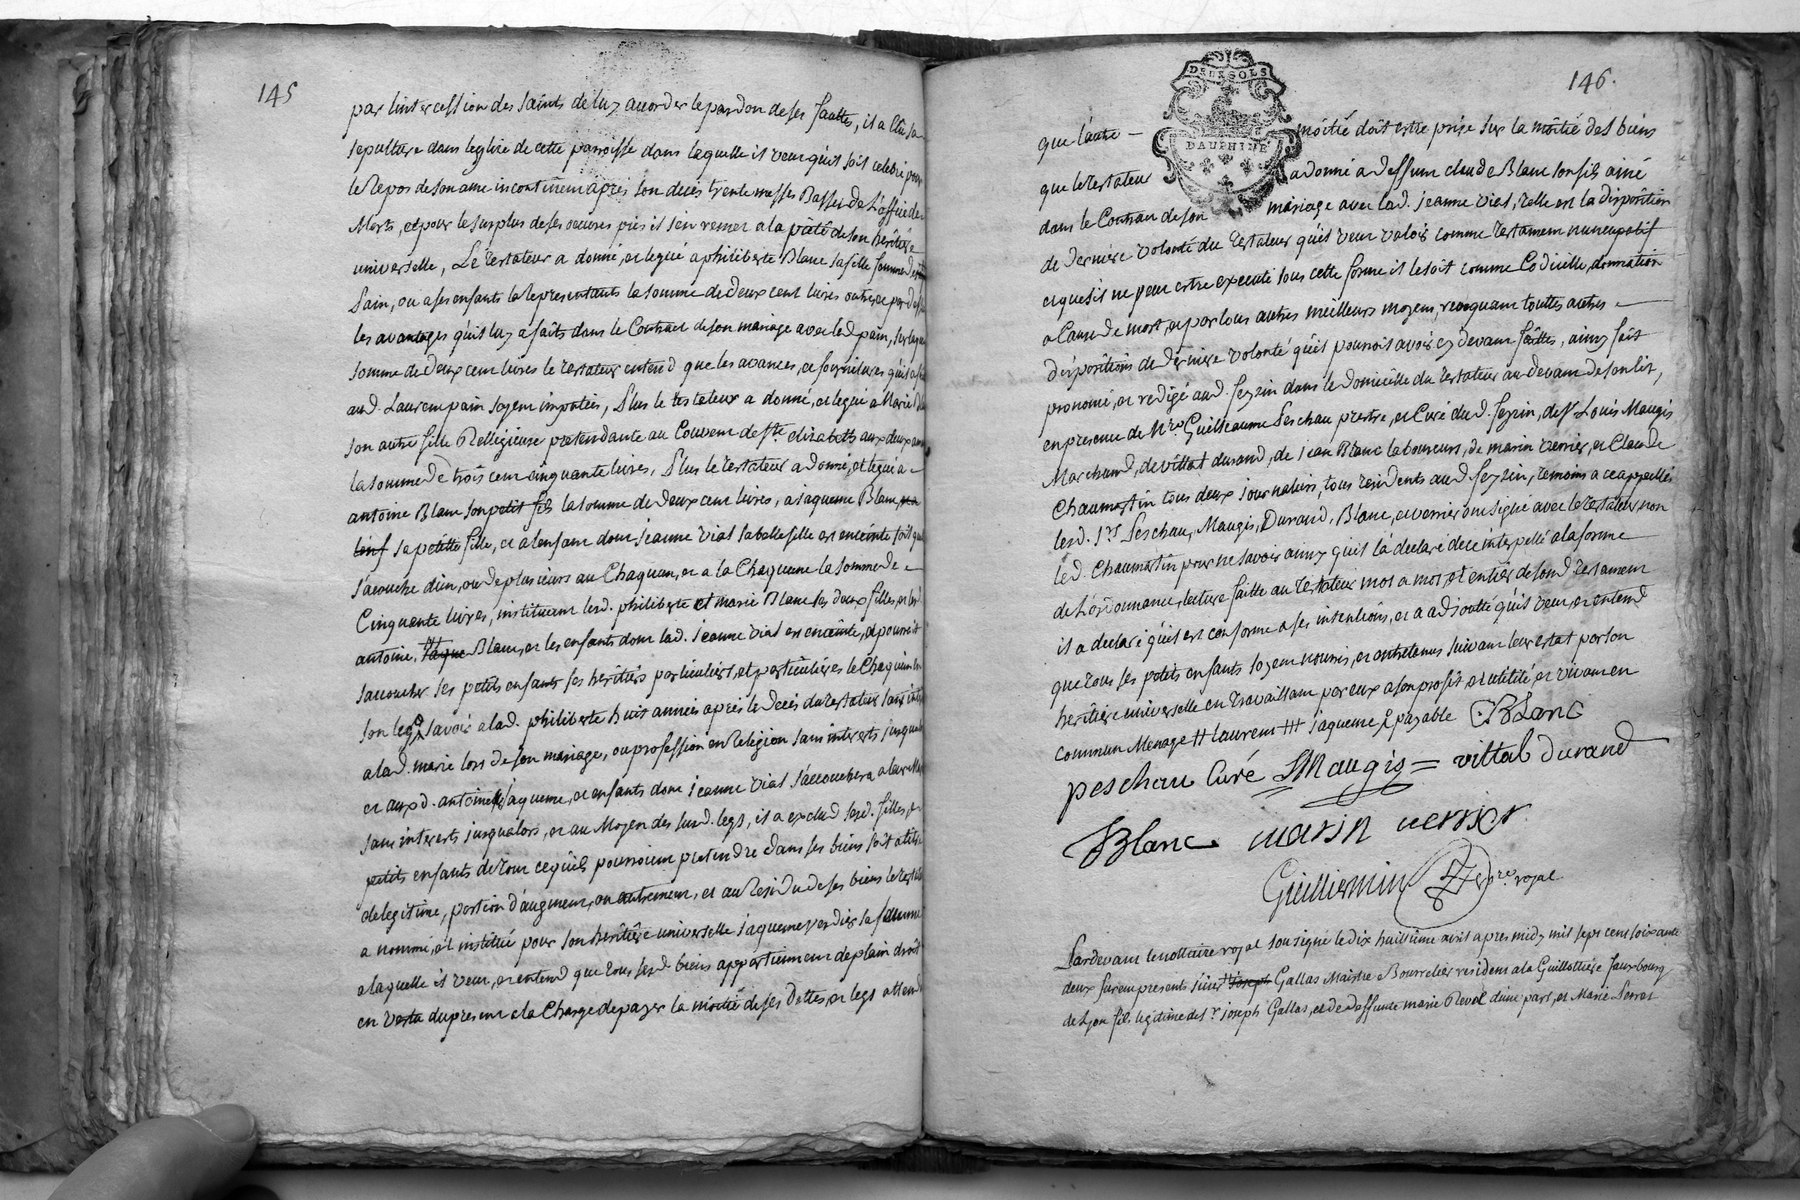 145
par l'intercession des saints de luy accorder le pardon de ses fautes, il a élu sa
sepulture dans leglise de cette parroisse dans laquelle il veut quil soit celebré pour
le Repos de son ame incontinent après son decès trente messes Basses de L'office de
Morts, et pour le surplus de ses oeuvres pies il s'en remet a la piété de son heritière
universelle, Le testateur a donné, et legué a philiberte Blanc sa fille femme de
pain, ou a ses enfants la representants la somme de deux cent livres outre et par dessus
les avantages quil luy a faits dans le Contract de son mariage avec led. pain, sur laquelle
somme de deux cent livres le testateur entend que les avances, et fournitures quil a fait
aud. Laurent pain soyent imputées, Plus le testateur a donné, et legué a Marie Blanc
son autre fille Relligieuse pretendante au Couvent de Ste elizabeth aux deux amants
la somme de trois cent cinquante livres, Plus le testateur a donné, et legué a
antoine Blanc son petit fils la somme de deux cent livres, a jaqueme Blanc
sa petitte fille, et a lenfant dont jeanne Vial sa belle fille est enceinte soit quelle
s'acouche d'un, ou de plusieurs au Chaquun, et a la Chaquune la somme de
Cinquante livres, instituant lesd. philiberte et marie Blanc ses deux filles, et led.
antoine, Jaque Blanc, et les enfants dont lad. jeanne Vial est enceinte, et pourroit
s'accoucher ses petits enfants ses heritiers particuliers, et particulières le Chaquun en
son legs, savoir a lad. philiberte huit années après le decès du testateur sans interets
a lad. marie lors de son mariage, ou profession en Religion sans interets jusqualors
et auxd. antoine, jaqueme, et enfants dont jeanne Vial s'accouchera a leur
sans interets jusqualors, et au Moyen des susd. legs, il a exclud sesd. filles, et
petits enfants de tout ce quils pourroient pretendre dans ses biens soit a titre
de legitime, portion d'augment, ou autrement, et au Residu de ses biens le testateur
a nommé, et institué pour son heritière universelle jaqueme verdier sa femme
a laquelle il veut, et entend que tous sesd. biens appartiennent de plain droit
en vertu du present a la Charge de payer la moitié de ses dettes, et legs attendu
146.
DEUX SOLS
DAUPHINÉ
que l'autre — moitié doit estre prise sur la moitié des biens
que le testateur a donné a deffunt claude Blanc son fils ainé
dans le Contract de son mariage avec lad. jeanne Vial, telle est la disposition
de derniere volonté du testateur qu'il veut valoir comme testament nuncupatif
et que s'il ne peut estre executé sous cette forme il le soit comme Codicille, donnation
a Cause de mort, et par tous autres meilleurs moyens, revoquant touttes autres
dispositions de derniere volonté quil pourroit avoir cy devant faittes, ainsy fait
prononcé, et redigé aud. feyzin dans le domicille du testateur au devant de son lit,
en presence de Mre Guilleaume Peschau prestre, et Curé dud. feyzin, de Sr Louis Maugis
Marchand, de vittal durand, de jean Blanc laboureurs, de marin verrier, et Claude
Chaumartin tous deux journaliers, tous residents aud feyzin, temoins a ce appellés
lesd. Srs Peschau, Maugis, Durand, Blanc, et verrier ont signé avec le testateur non
led. Chaumartin pour ne savoir ainsy quil l'a declaré de ce interpellé a la forme
de L'ordonnance, lecture faitte au testateur mot a mot, et entier de sond. testament
il a declaré quil est conforme a ses intentions, et a adjoutté quil veut, et entend
que tous ses petits enfants soyent nourris, et entretenus suivant leur estat par son
heritière universelle en travaillant par eux a son profit et utilité, et vivant en
commun Menage # laurent ### jaqueme payable Blanc
peschau Curé LMaugis = vittal durand
Blanc marin verrier
Guilliermin nre royal
Pardevant le nottaire royal soussigné le dix huitième avril apres midy mil sept cent soixante
deux furent presents sieur Joseph Gallas Maistre Bourrelier resident a la Guillottière fauxbourg
de Lyon fils legitime de Sr joseph Gallas, et de deffunte marie Revol d'une part, et Marie Perret